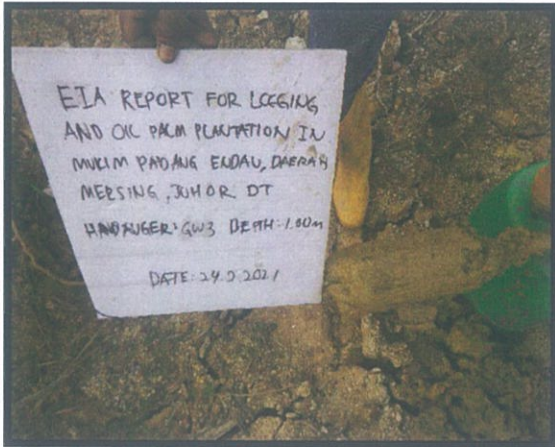 EIA REPORT FOR LOGGING
AND OIL PALM PLANTATION IN
MUKIM PADANG ENDAU, DAERAH
MERSING, JOHOR DT
HANDAUGER: GW3 DEPTH: 1.00m
DATE: 24.2.2021